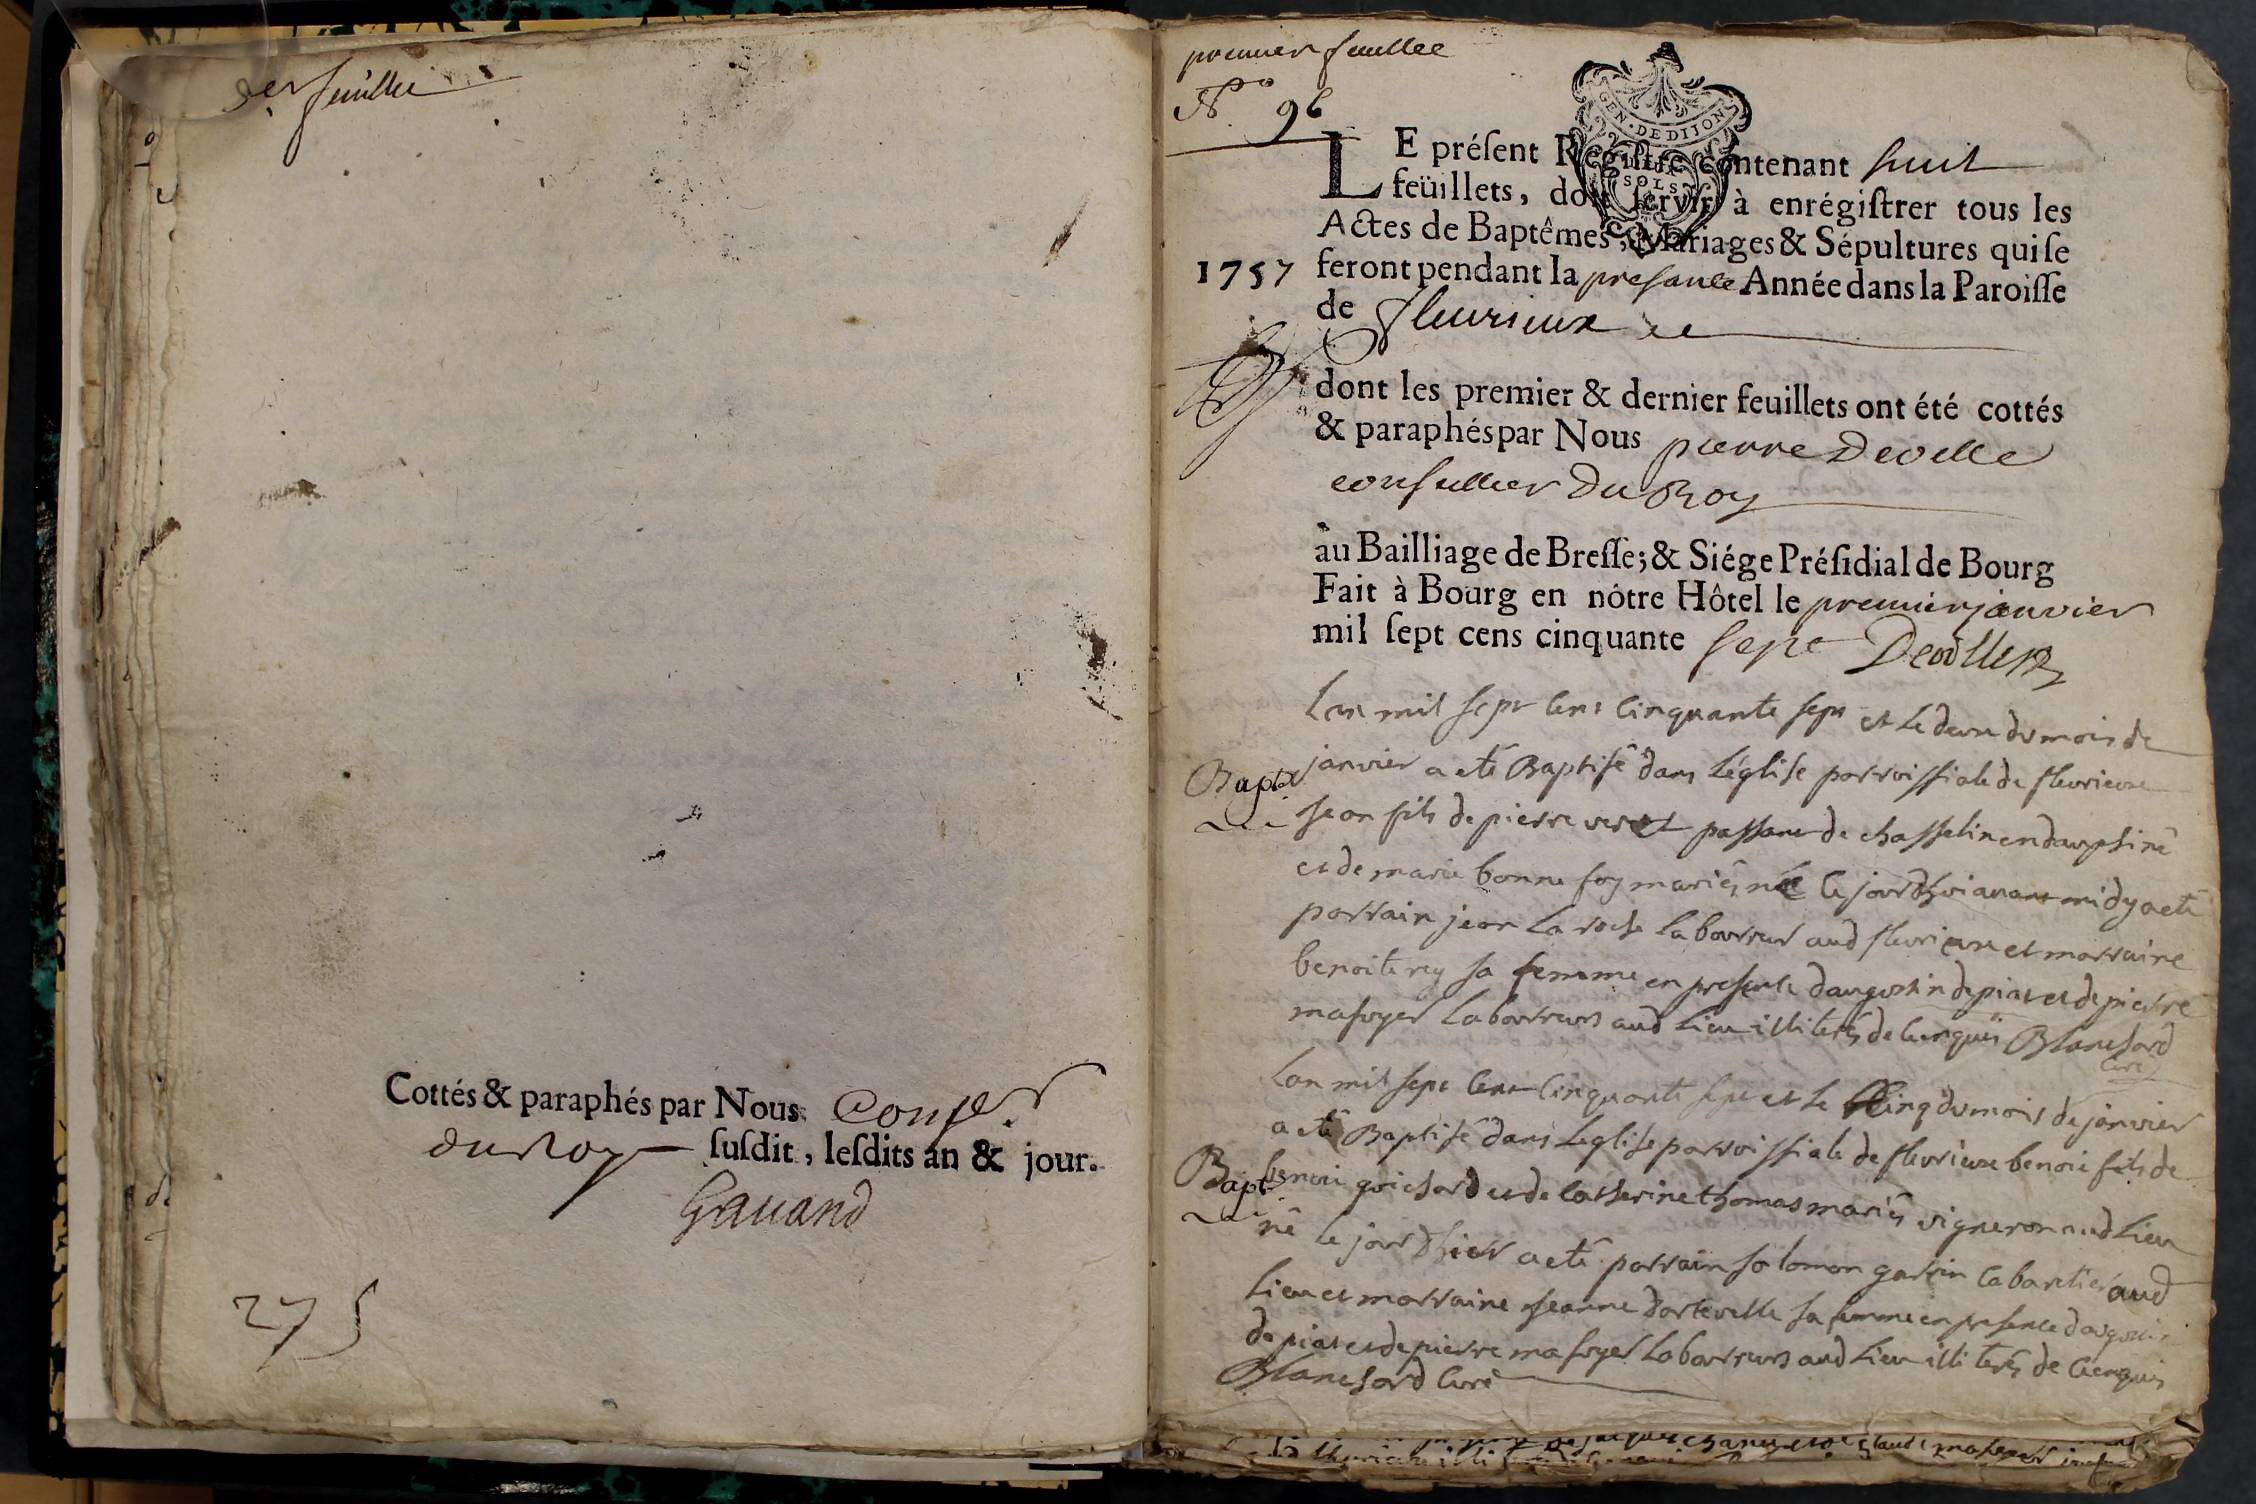 der feuillet
Cottés & paraphés par Nous conser
du Roy susdit, lesdits an & jour.
Gauand
275
premier feuillet
No 96
GEN. DE DIJON
SOLS
LE présent Registre contenant huit
feüillets, doit servir à enrégistrer tous les
Actes de Baptêmes, Mariages & Sépultures qui se
1757 feront pendant la presante Année dans la Paroisse
de fleurieux
dont les premier & dernier feuillets ont été cottés
& paraphés par Nous pierre Deville
conseillier Du Roy
au Bailliage de Bresse; & Siége Présidial de Bourg
Fait à Bourg en nôtre Hôtel le premier janvier
mil sept cens cinquante sept Deville
Lan mil sept cens cinquante sept et le deux du mois de
Bapt janvier a eté Baptisé dans Léglise parroissiale de fleurieux
jean fils de pierre veret passant de chasselin en dauphiné
et de marie bonne foy mariés né le jourdhui avant midy a eté
parrain jean La roche Laboureur aud fleurieux et marraine
benoite rey sa femme en presence daugustin depiat et de pierre
masuyer Laboureurs aud Lieu illiterés de ce enquis Blanchard
curé
Lan mil sept cent cinquante sept et le cinq du mois de janvier
a eté Baptisé dans Leglise parroissiale de fleurieux benoit fils de
Bapt benoit guichard et de catherine thomas mariés vigneron aud Lieu
né le jour dhier a eté parrain salomon garin cabaretier aud
Lieu et marraine jeanne dortevelle sa femme en presence daugustin
depiat et de pierre masuyer Laboureurs aud Lieu illiterés de ce enquis
Blanchard curé